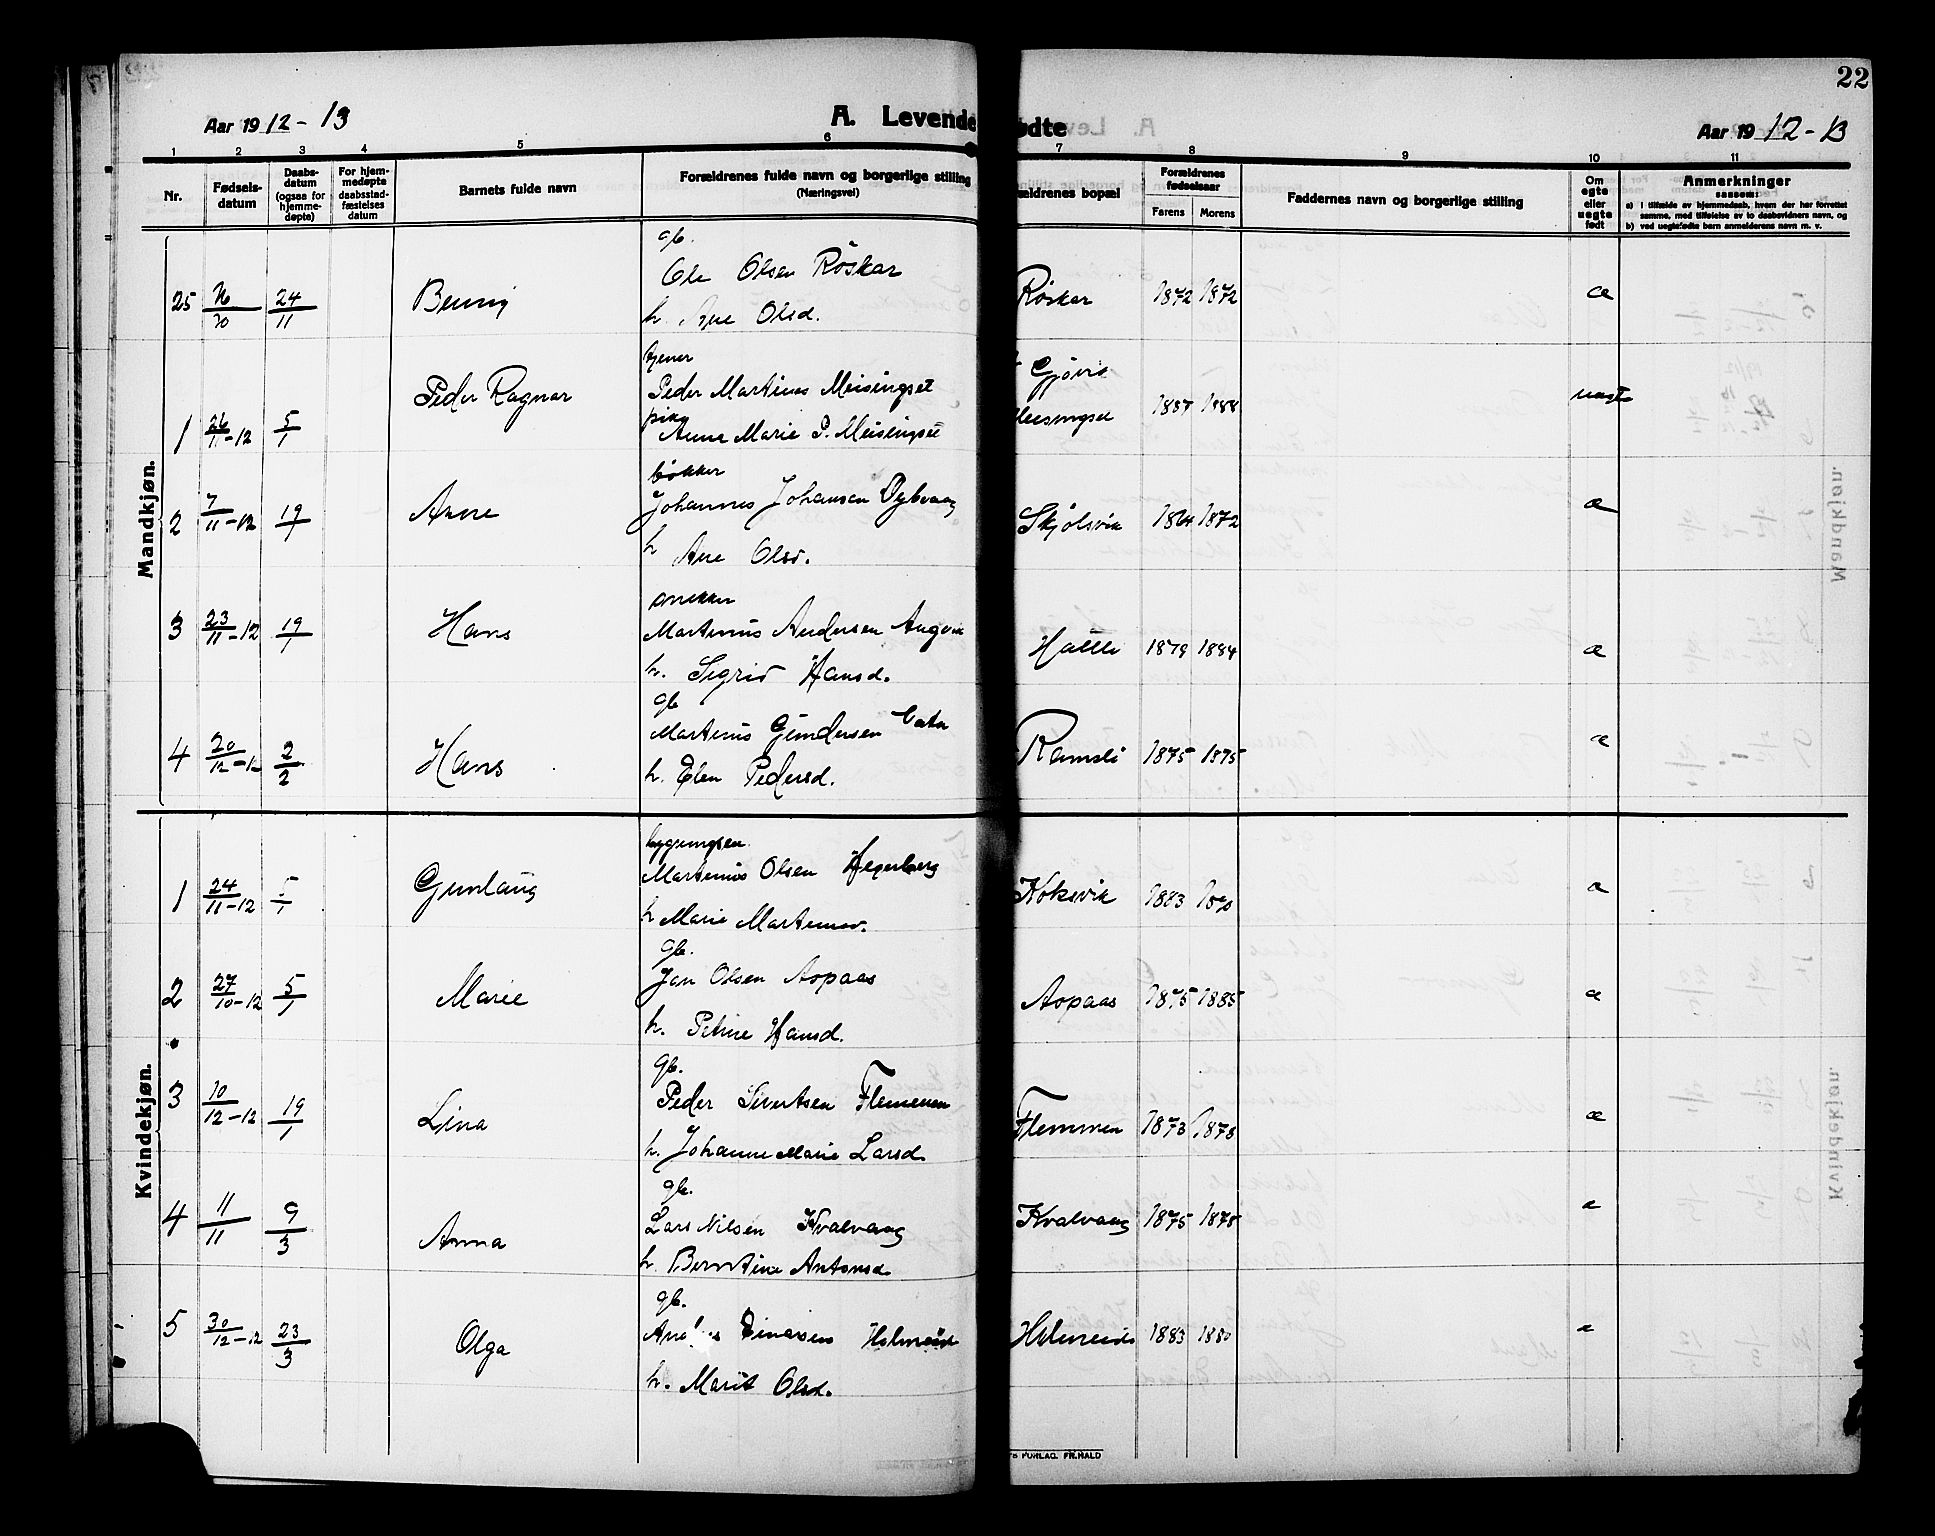 22
Aar 1912-13 A. Levendefødte Aar 1912-13
1 2 3 4 5 6 7 8 9 10 11
Nr. Fødsels-datum Daabs-datum (ogsaa for hjemme-døpte) For hjem-medøpte daabsstad-fæstelses datum Barnets fulde navn Forældrenes fulde navn og borgerlige stilling (Næringsvei) ældrenes bopæl Forældrenes fødselsaar Farens Morens Faddernes navn og borgerlige stilling Om egte eller uegte født Anmerkninger saasom:
a) i tilfælde av hjemmedaab, hvem der har forrettet samme, med tilføielse av to daabsvidners navn, og
b) ved uegtefødte barn anmelderens navn m. v.
Mandkjøn.
gb.
Ole Olsen Røskar
25 24/11 Røskar 1872 1872 æ
h. Ane Olsd.
tjener
Peder Ragnar Peder Martinus Meisingset Gjøvik
pike
1 26/11-12 5/1 Anne Marie P. Meisingset Meisingset 1887 1888 uegte
bøkker
2 7/11-12 19/1 Arne Johannes Johansen Skjølsvik 1864 1872 æ
h Ane Olsd.
snekker
3 23/11-12 19/1 Hans Martinus Andersen Angvik 1879 1884 æ
h. Sigrid Hansd.
gb
4 20/12-12 2/2 Hans Martinus Gundersen Ramsli 1875 1875 æ
h. Elen Pedersd.
Kvindekjøn.
1 24/11-12 5/1 Gunlaug Martinus Olsen Hegerberg Koksvik 1883 æ
h Marie Martinusd.
gb.
2 27/10-12 5/1 Marie Jon Olsen Aspaas Aspaas 1875 1885 æ
h. Petrine Hansd.
gb.
3 10/12-12 19/1 Lina Peder Sivertsen Flemmen Flemmen 1873 1878 æ
h. Johanne Marie Larsd.
gb.
4 11/11 9/3 Anna Lars Nilsen Kvalvaag Kvalvaag 1875 1878 æ
h. Berntine Antonsd.
gb.
5 30/12-12 23/3 Olga Einarsen Holmeide 1883 1880 æ
h. Marit Olsd.
FORLAG. FR. HALD